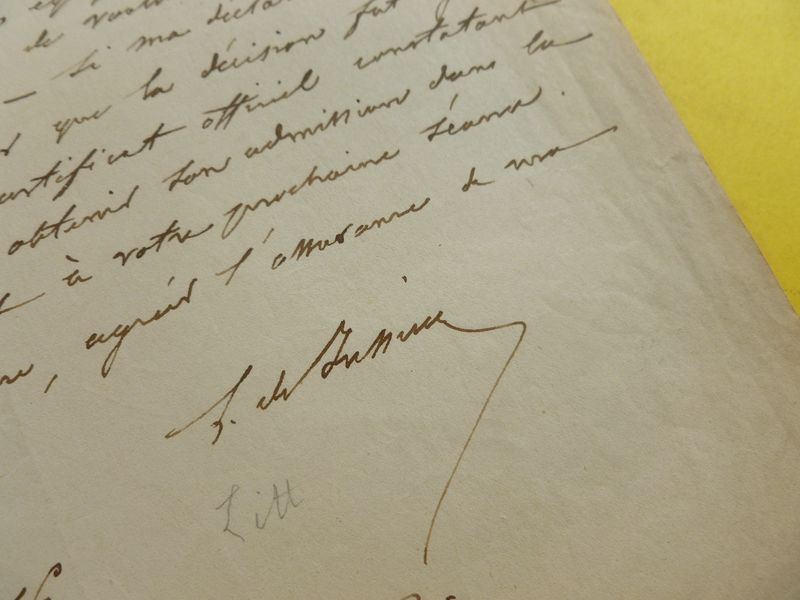 de
— Si ma
que la décision fut
certificat officiel constatant
obtenir son admission dans la
à votre prochaine séance.
, agréer l'assurance de
de Jussieu
Litt